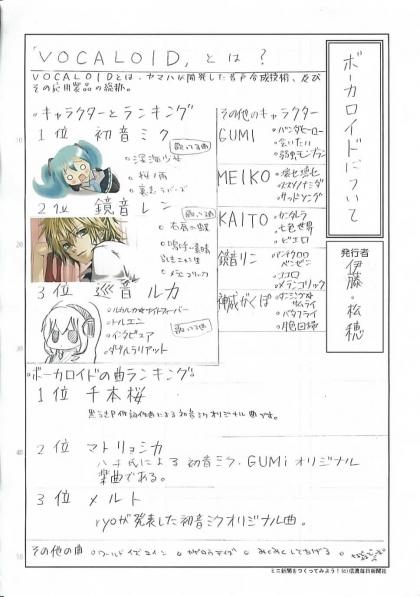 ボーカロイドについて
発行者
伊藤・松穂
「VOCALOID」とは?
VOCALOIDとは、ヤマハが開発した音声合成技術、及び
その応用製品の総称。
キャラクターとランキング
1位 初音ミク
歌ってる曲
深海少女
桜ノ雨
裏表ラバーズ
2位 鏡音レン
歌ってる曲
右肩の蝶
メランコリック
3位 巡音ルカ
歌ってる曲
ルカルカ★ナイトフィーバー
トルエニ
ダブルラリアット
その他のキャラクター
GUMI
パンダヒーロー
会いたい
弱虫モンブラン
MEIKO
KAITO
カンタレラ
七色世界
ピエロ
鏡音リン
ココロ
メランコリック
神威がくぽ
ダンシング☆
サムライ
パタフライ
ボーカロイドの曲ランキング
1位 千本桜
黒うさP作詞作曲による初音ミクオリジナル曲です。
2位 マトリョシカ
ハチ氏による初音ミク、GUMIオリジナル
楽曲である。
3位 メルト
ryoが発表した初音ミクオリジナル曲。
その他の曲 ワールドイズマイン みくみくにしてあげる
ミニ新聞をつくってみよう! (c)信濃毎日新聞社
10
20
30
40
50